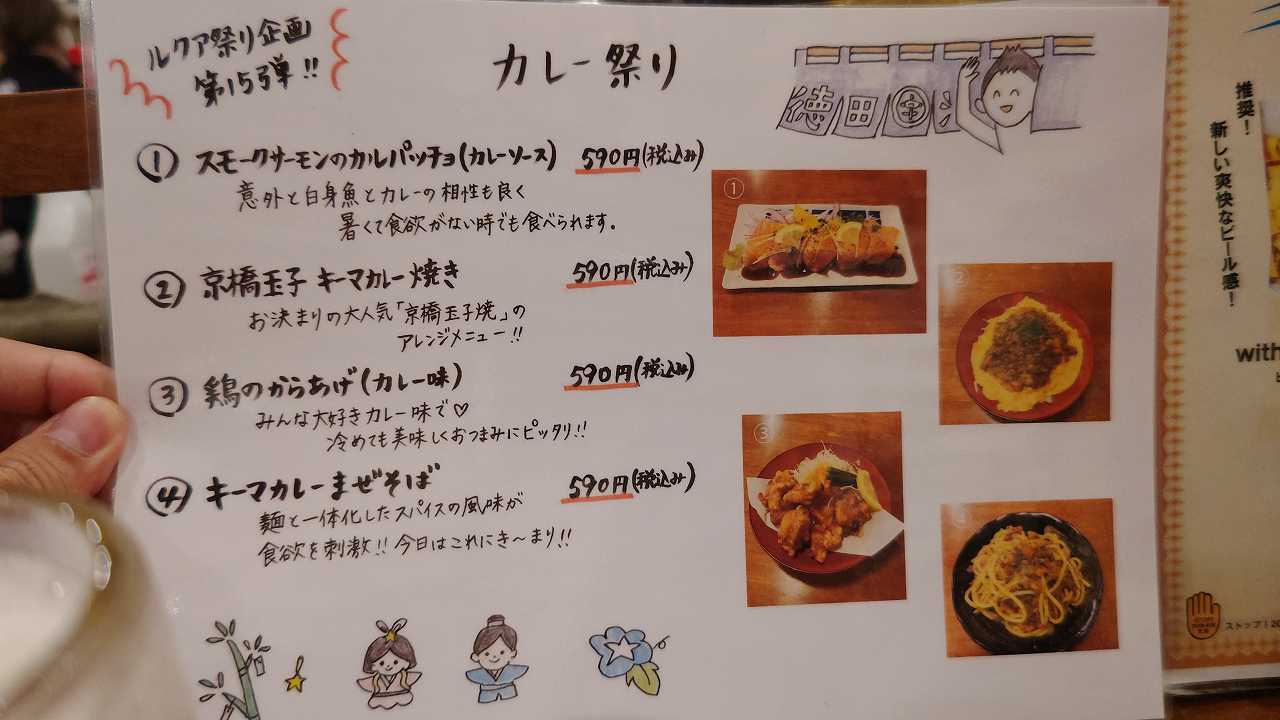 ルクア祭り企画
第15弾!!
カレー祭り
徳田
① スモークサーモンのカルパッチョ(カレーソース) 590円(税込み)
意外と白身魚とカレーの相性も良く
暑くて食欲がない時でも食べられます。
② 京橋玉子 キーマカレー焼き 590円(税込み)
お決まりの大人気「京橋玉子焼」の
アレンジメニュー!!
③ 鶏のからあげ(カレー味) 590円(税込み)
みんな大好きカレー味で♡
冷めても美味しくおつまみにピッタリ!!
④ キーマカレーまぜそば 590円(税込み)
麺と一体化したスパイスの風味が
食欲を刺激!! 今日はこれにき〜まり!!
①
②
③
推奨!
新しい爽快なビール感!
with
ストップ!20